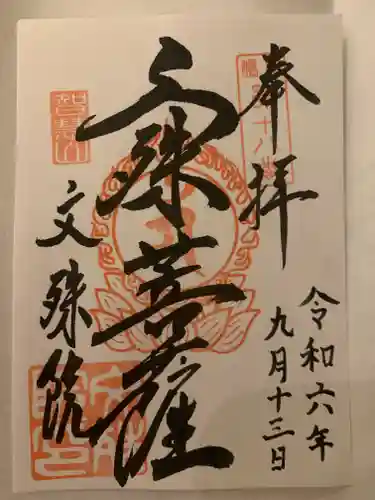 奉拝
令和六年
九月十三日
文殊菩薩
智慧山
文殊院